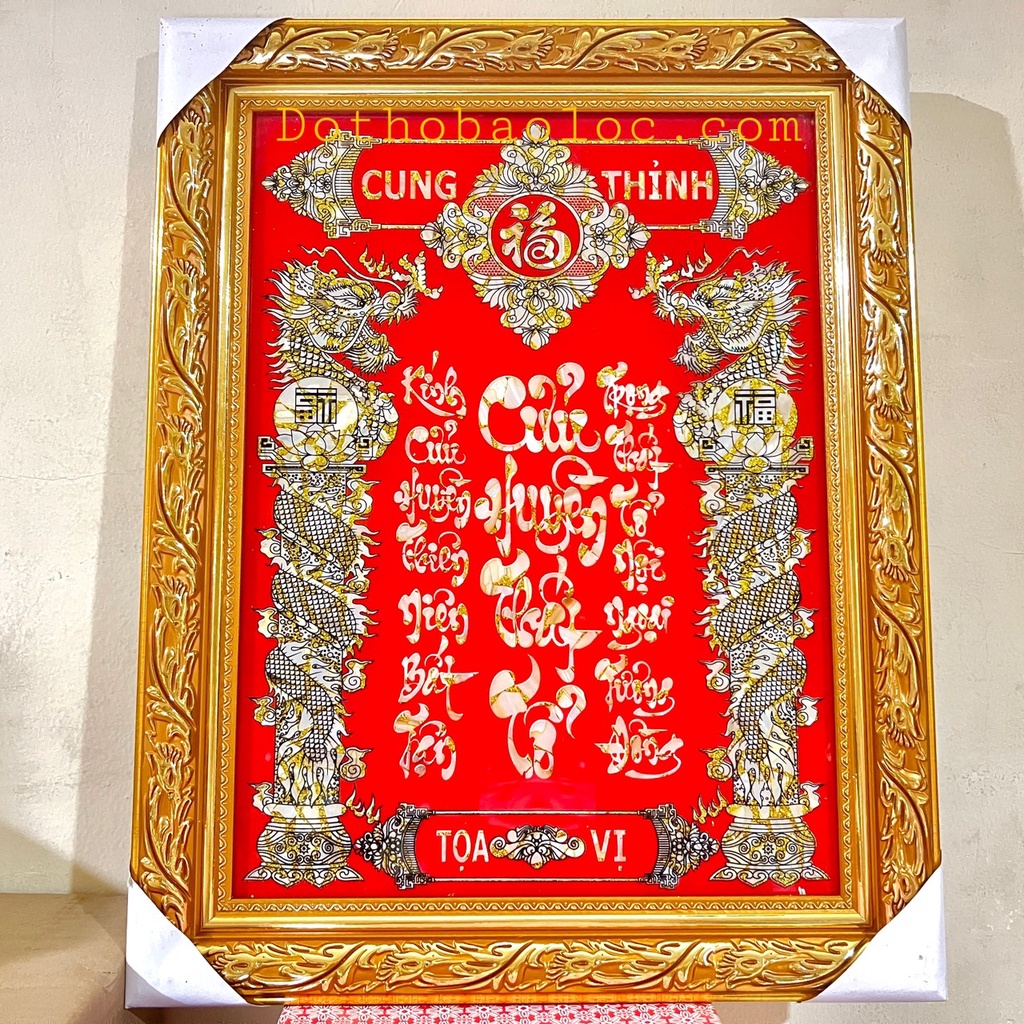 Dothobaoloc.com
CUNG THỈNH
福
福
Kính Cửu Huyền Thiên Niên Bất Tận
Cửu Huyền Thất Tổ
Trọng Thất Tổ Nội Ngoại Tương Đồng
TỌA VỊ